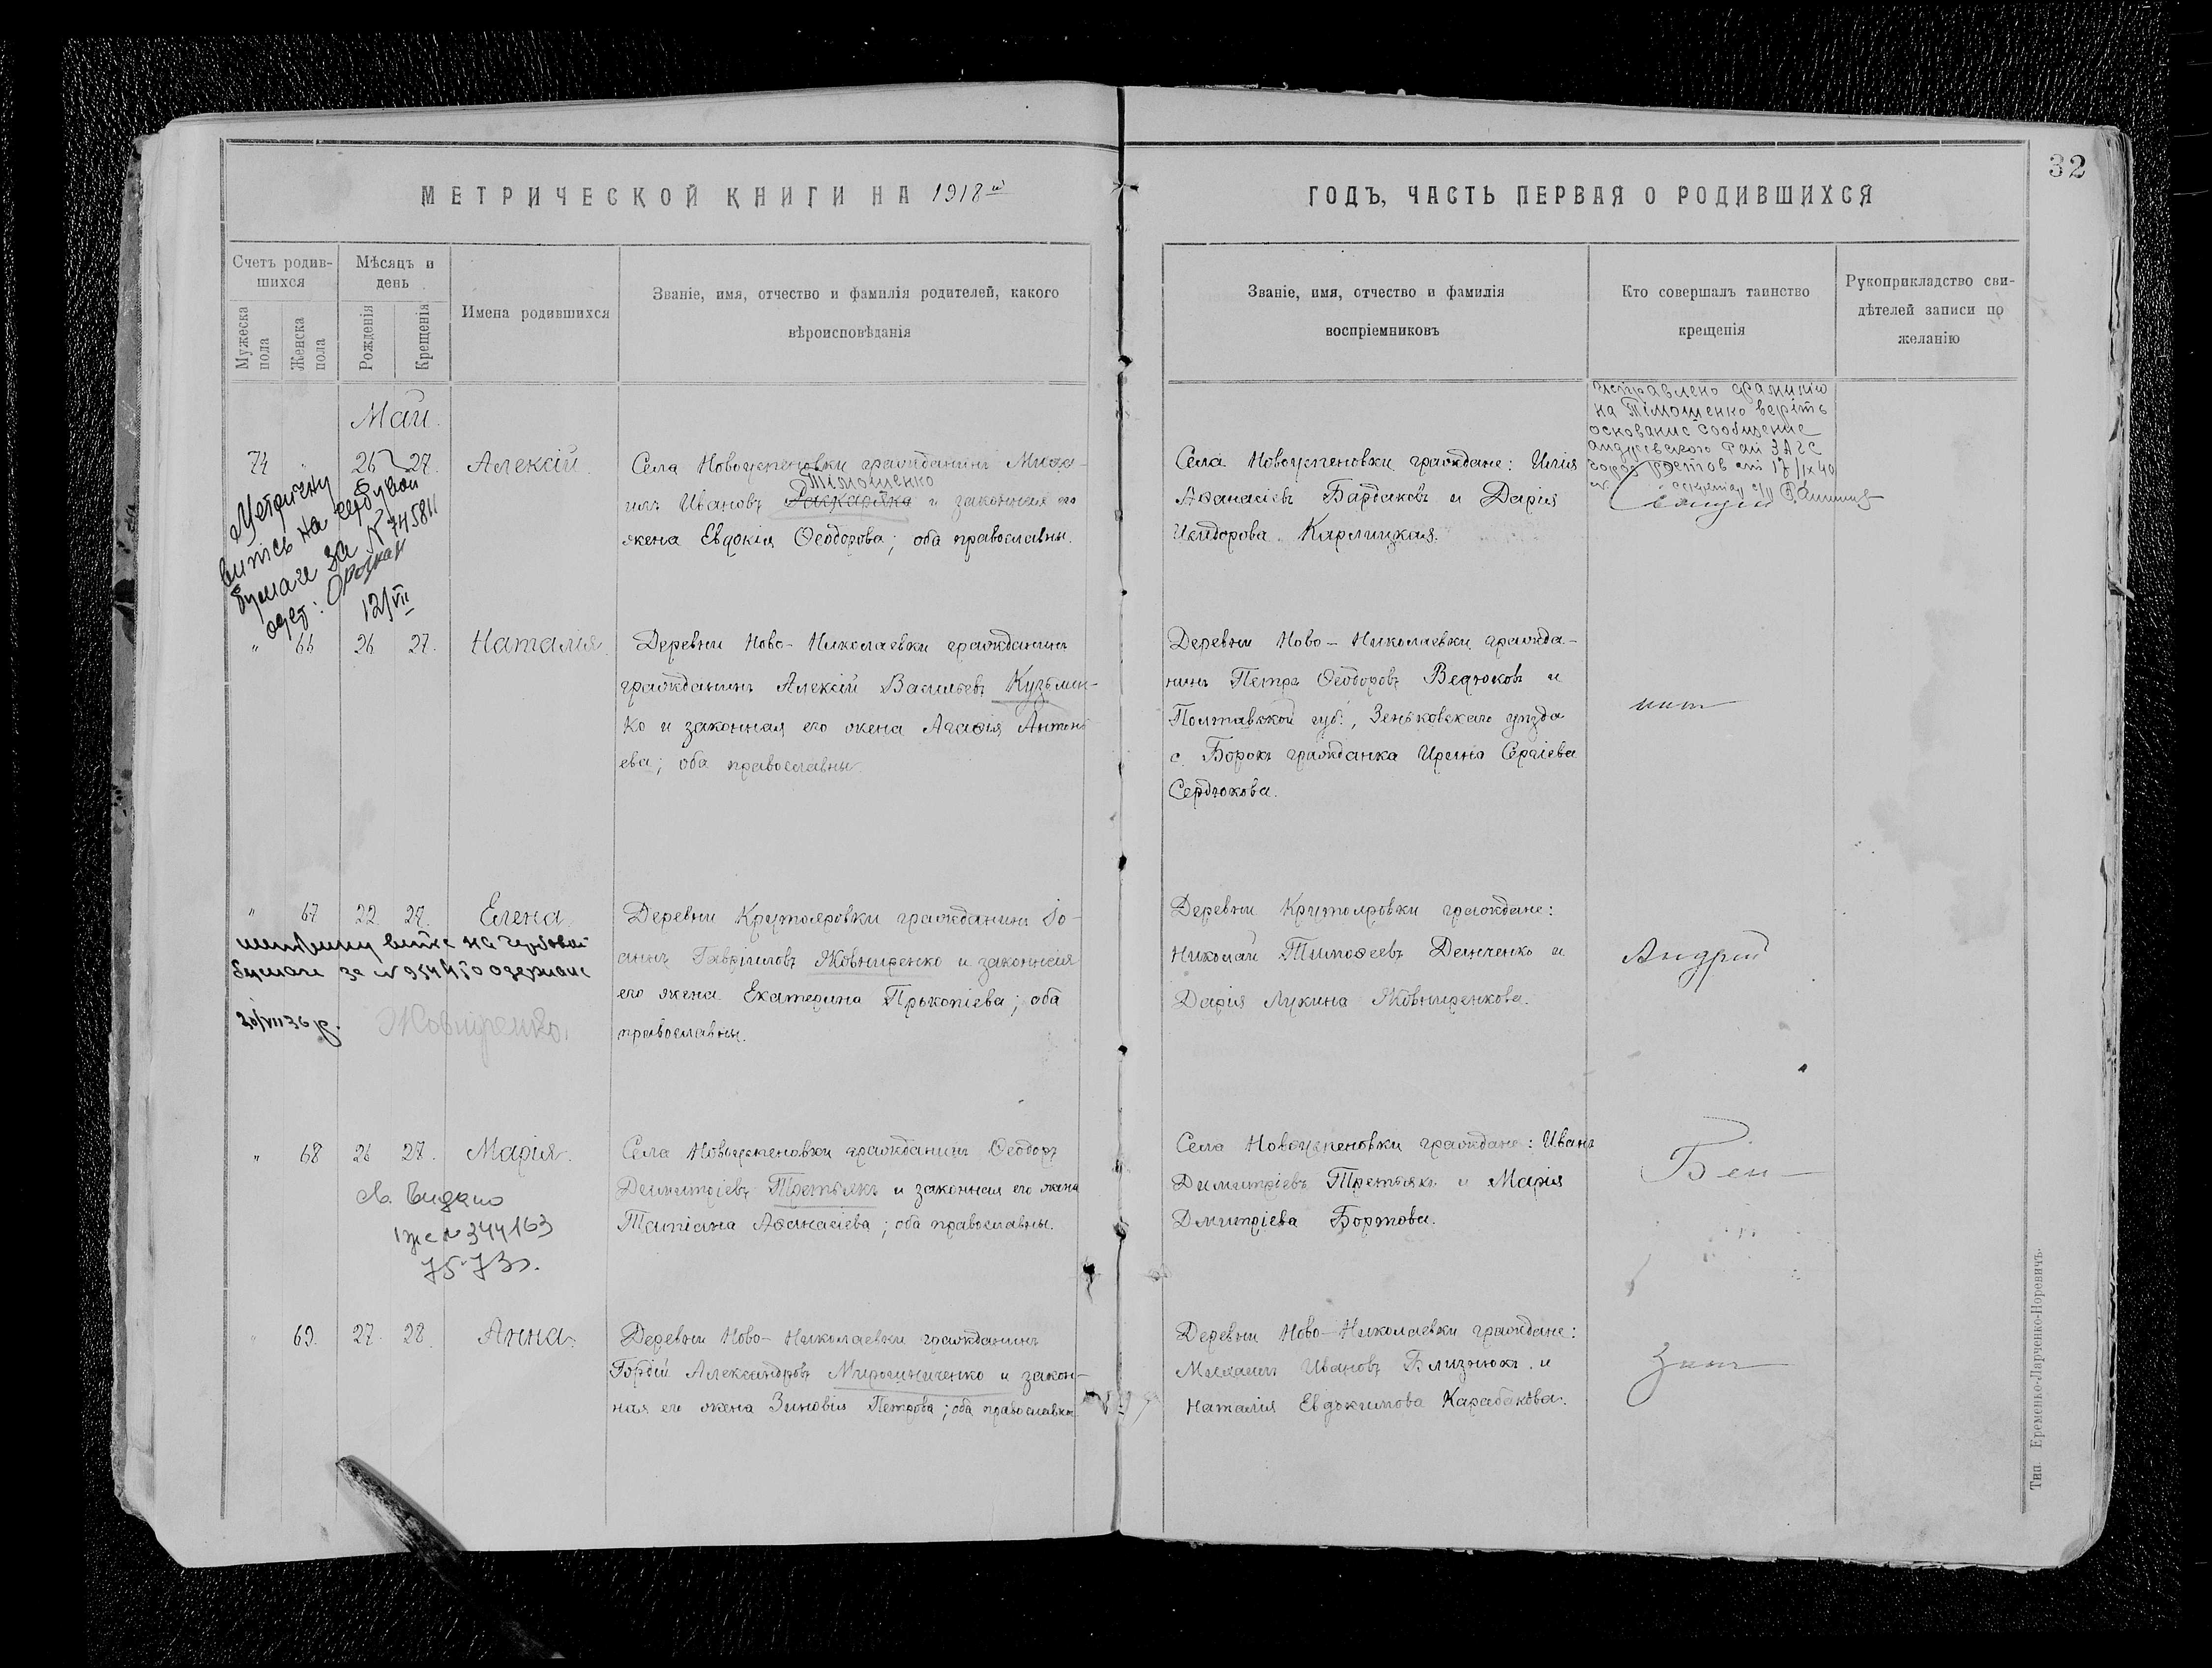 32
МЕТРИЧЕСКОЙ КНИГИ НА 1918 й
ГОДЪ, ЧАСТЬ ПЕРВАЯ О РОДИВШИХСЯ
Счетъ родив-
шихся
Мужеска пола
Женска пола
Мѣсяцъ и
день
Рожденія
Крещенія
Имена родившихся
Званіе, имя, отчество и фамилія родителей, какого
вѣроисповѣданія
Званіе, имя, отчество и фамилія
воспріемниковъ
Кто совершалъ таинство
крещенія
Рукоприкладство сви-
дѣтелей записи по
желанію
Май.
74 " 26 27. Алексій.
Села Новоуспеновки гражданинъ Миха-
Тімошенко
илъ Ивановъ и законная его
жена Евдокія Ѳеодорова; оба православны.
Села Новоуспеновки граждане: Илія
Аѳанасіевъ Бардаковъ и Дарія
Исидорова Карлицкая.
исправлено фамилію
на Тімошенко веріть
основание сообщение
рай ЗАГС
17/IX 40
Метричну
витісь на гербувой
бумаге за № 745811
12/VII
" 66 26 27. Наталія.
Деревни Ново-Николаевки гражданинъ
гражданинъ Алексій Васильевъ Кузьмен-
ко и законная его жена Агаѳія Антонь
ева; оба православны.
Деревни Ново-Николаевки гражда-
нинъ Петръ Ѳеодоровъ Ведюковъ и
Полтавской губ., Зеньковскаго уѣзда
с. Борокъ гражданка Ирина Сергіева
Сердюкова.
" 67 22 27. Елена
Деревни Крутояровки гражданинъ Іо-
аннъ Гавріиловъ Жовниренко и законная
его жена Екатерина Прокопіева; оба
православны.
Деревни Крутояровки граждане:
Николай Тимоѳеевъ Демченко и
Дарія Лукина Жовниренкова.
Андрей
на гербовой
бумаге за №
Жовніренко.
" 68 26 27. Марія.
Села Новоуспеновки гражданинъ Ѳеодоръ
Димитріевъ Третьякъ и законная его жена
Татіана Аѳанасіева; оба православны.
Села Новоуспеновки граждане: Иванъ
Димитріевъ Третьякъ и Марія
Дмитріева Бортова.
св. видано
№ 344163
" 69. 27. 28 Анна.
Деревни Ново-Николаевки гражданинъ
Гордій Александровъ Мирошниченко и закон-
ная его жена Зиновія Петрова; оба православны
Деревни Ново-Николаевки граждане:
Михаилъ Ивановъ Близнюкъ и
Наталія Евдокимова Карабакова.
Тип. Еременко-Ларченко-Норевичъ.